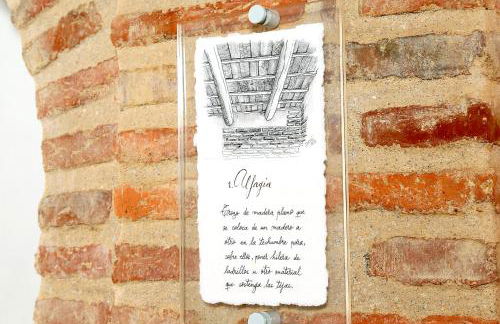 1. Alfagía
Trozo de madera plano que
se coloca de un madero a
otro en la techumbre para,
sobre ellos, poner hilera de
ladrillos u otro material
que sostenga las tejas.